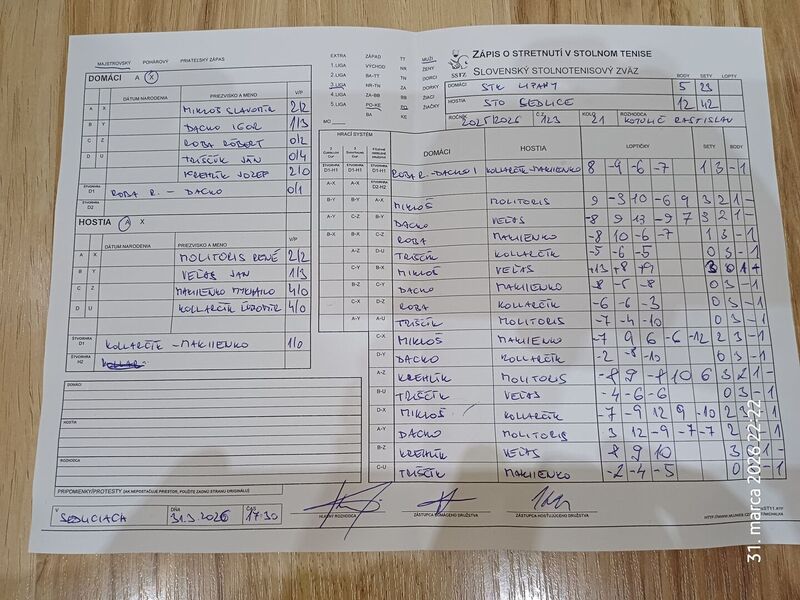 MAJSTROVSKÝ POHÁROVÝ PRIATEĽSKÝ ZÁPAS
DOMÁCI A X
DÁTUM NARODENIA PRIEZVISKO A MENO V/P
A X MIKLOŠ SLAVOMÍR 2/2
B Y DACKO IGOR 1/3
C Z ROBA RÓBERT 0/2
D U TRIŠČÍK JÁN 0/4
KREHLÍK JOZEF 2/0
ŠTVORHRA D1 ROBA R. - DACKO 0/1
D2
HOSTIA A X
DÁTUM NARODENIA PRIEZVISKO A MENO V/P
A X MOLITORIS RENÉ 2/2
B Y VEĽAS JÁN 1/3
C Z MAKIIENKO MYKHAILO 4/0
D U KOLLARČÍK ĽUBOMÍR 4/0
ŠTVORHRA D1 KOLLARČÍK - MAKIIENKO 1/0
ŠTVORHRA H2
DOMÁCI:
HOSTIA:
ROZHODCA:
PRIPOMIENKY/PROTESTY (AK NEPOSTAČUJE PRIESTOR, POUŽITE ZADNÚ STRANU ORIGINÁLU)
V SEDLICIACH DŇA 31.3.2026 ČAS 17:30
EXTRA ZÁPAD TT MUŽI
1.LIGA VÝCHOD NR ŽENY
2.LIGA BA-TT TN DORCI
3.LIGA NR-TN ZA DORKY
4.LIGA ZA-BB BB ŽIACI
5.LIGA PO-KE PO ŽIAČKY
MO BA KE
SSTZ
ZÁPIS O STRETNUTÍ V STOLNOM TENISE
SLOVENSKÝ STOLNOTENISOVÝ ZVÄZ
BODY SETY LOPTY
DOMÁCI STK LIPANY 5 23
HOSTIA STO SEDLICE 12 42
ROČNÍK 2025/2026 Č.Z. 123 KOLO 21 ROZHODCA KOTULIČ RASTISLAV
HRACÍ SYSTÉM DOMÁCI HOSTIA LOPTIČKY SETY BODY
ŠTVORHRA D1-H1 ROBA R.-DACKO I KOLLARČÍK-MAKIIENKO 8 -9 -6 -7 1 3 -1
ŠTVORHRA D2-H2
B-Y B-Y A-X MIKLOŠ MOLITORIS 9 -3 10 -6 9 3 2 1 -
A-Y C-Z B-Y DACKO VEĽAS -8 9 13 -9 7 3 2 1 -
B-X ROBA MAKIIENKO -8 10 -6 -7 1 3 - 1
A-Z D-U TRIŠČÍK KOLLARČÍK -5 -6 -5 0 3 - 1
C-Y B-X MIKLOŠ VEĽAS
B-Z DACKO MAKIIENKO -8 -5 -8 0 3 - 1
C-X D-Z ROBA KOLLARČÍK -6 -6 -3 0 3 - 1
A-Y A-U TRIŠČÍK MOLITORIS -7 -4 -10 0 3 - 1
C-X MIKLOŠ MAKIIENKO -7 9 6 -6 -12 2 3 - 1
D-Y DACKO KOLLARČÍK -2 -8 -10 0 3 - 1
A-Z KREHLÍK MOLITORIS -8 9 -8 10 6 3 2 1 -
B-U TRIŠČÍK VEĽAS -4 -6 -6 0 3 - 1
D-X MIKLOŠ KOLLARČÍK -7 -9 12 9 -10 2 3 - 1
A-Y DACKO MOLITORIS 3 12 -9 -7 -7 2
B-Z KREHLÍK VEĽAS 8 9 10 3
C-U TRIŠČÍK MAKIIENKO -2 -4 -5 0
HLAVNÝ ROZHODCA ZÁSTUPCA DOMÁCEHO DRUŽSTVA ZÁSTUPCA HOSŤUJÚCEHO DRUŽSTVA
31. marca 2026 22:22